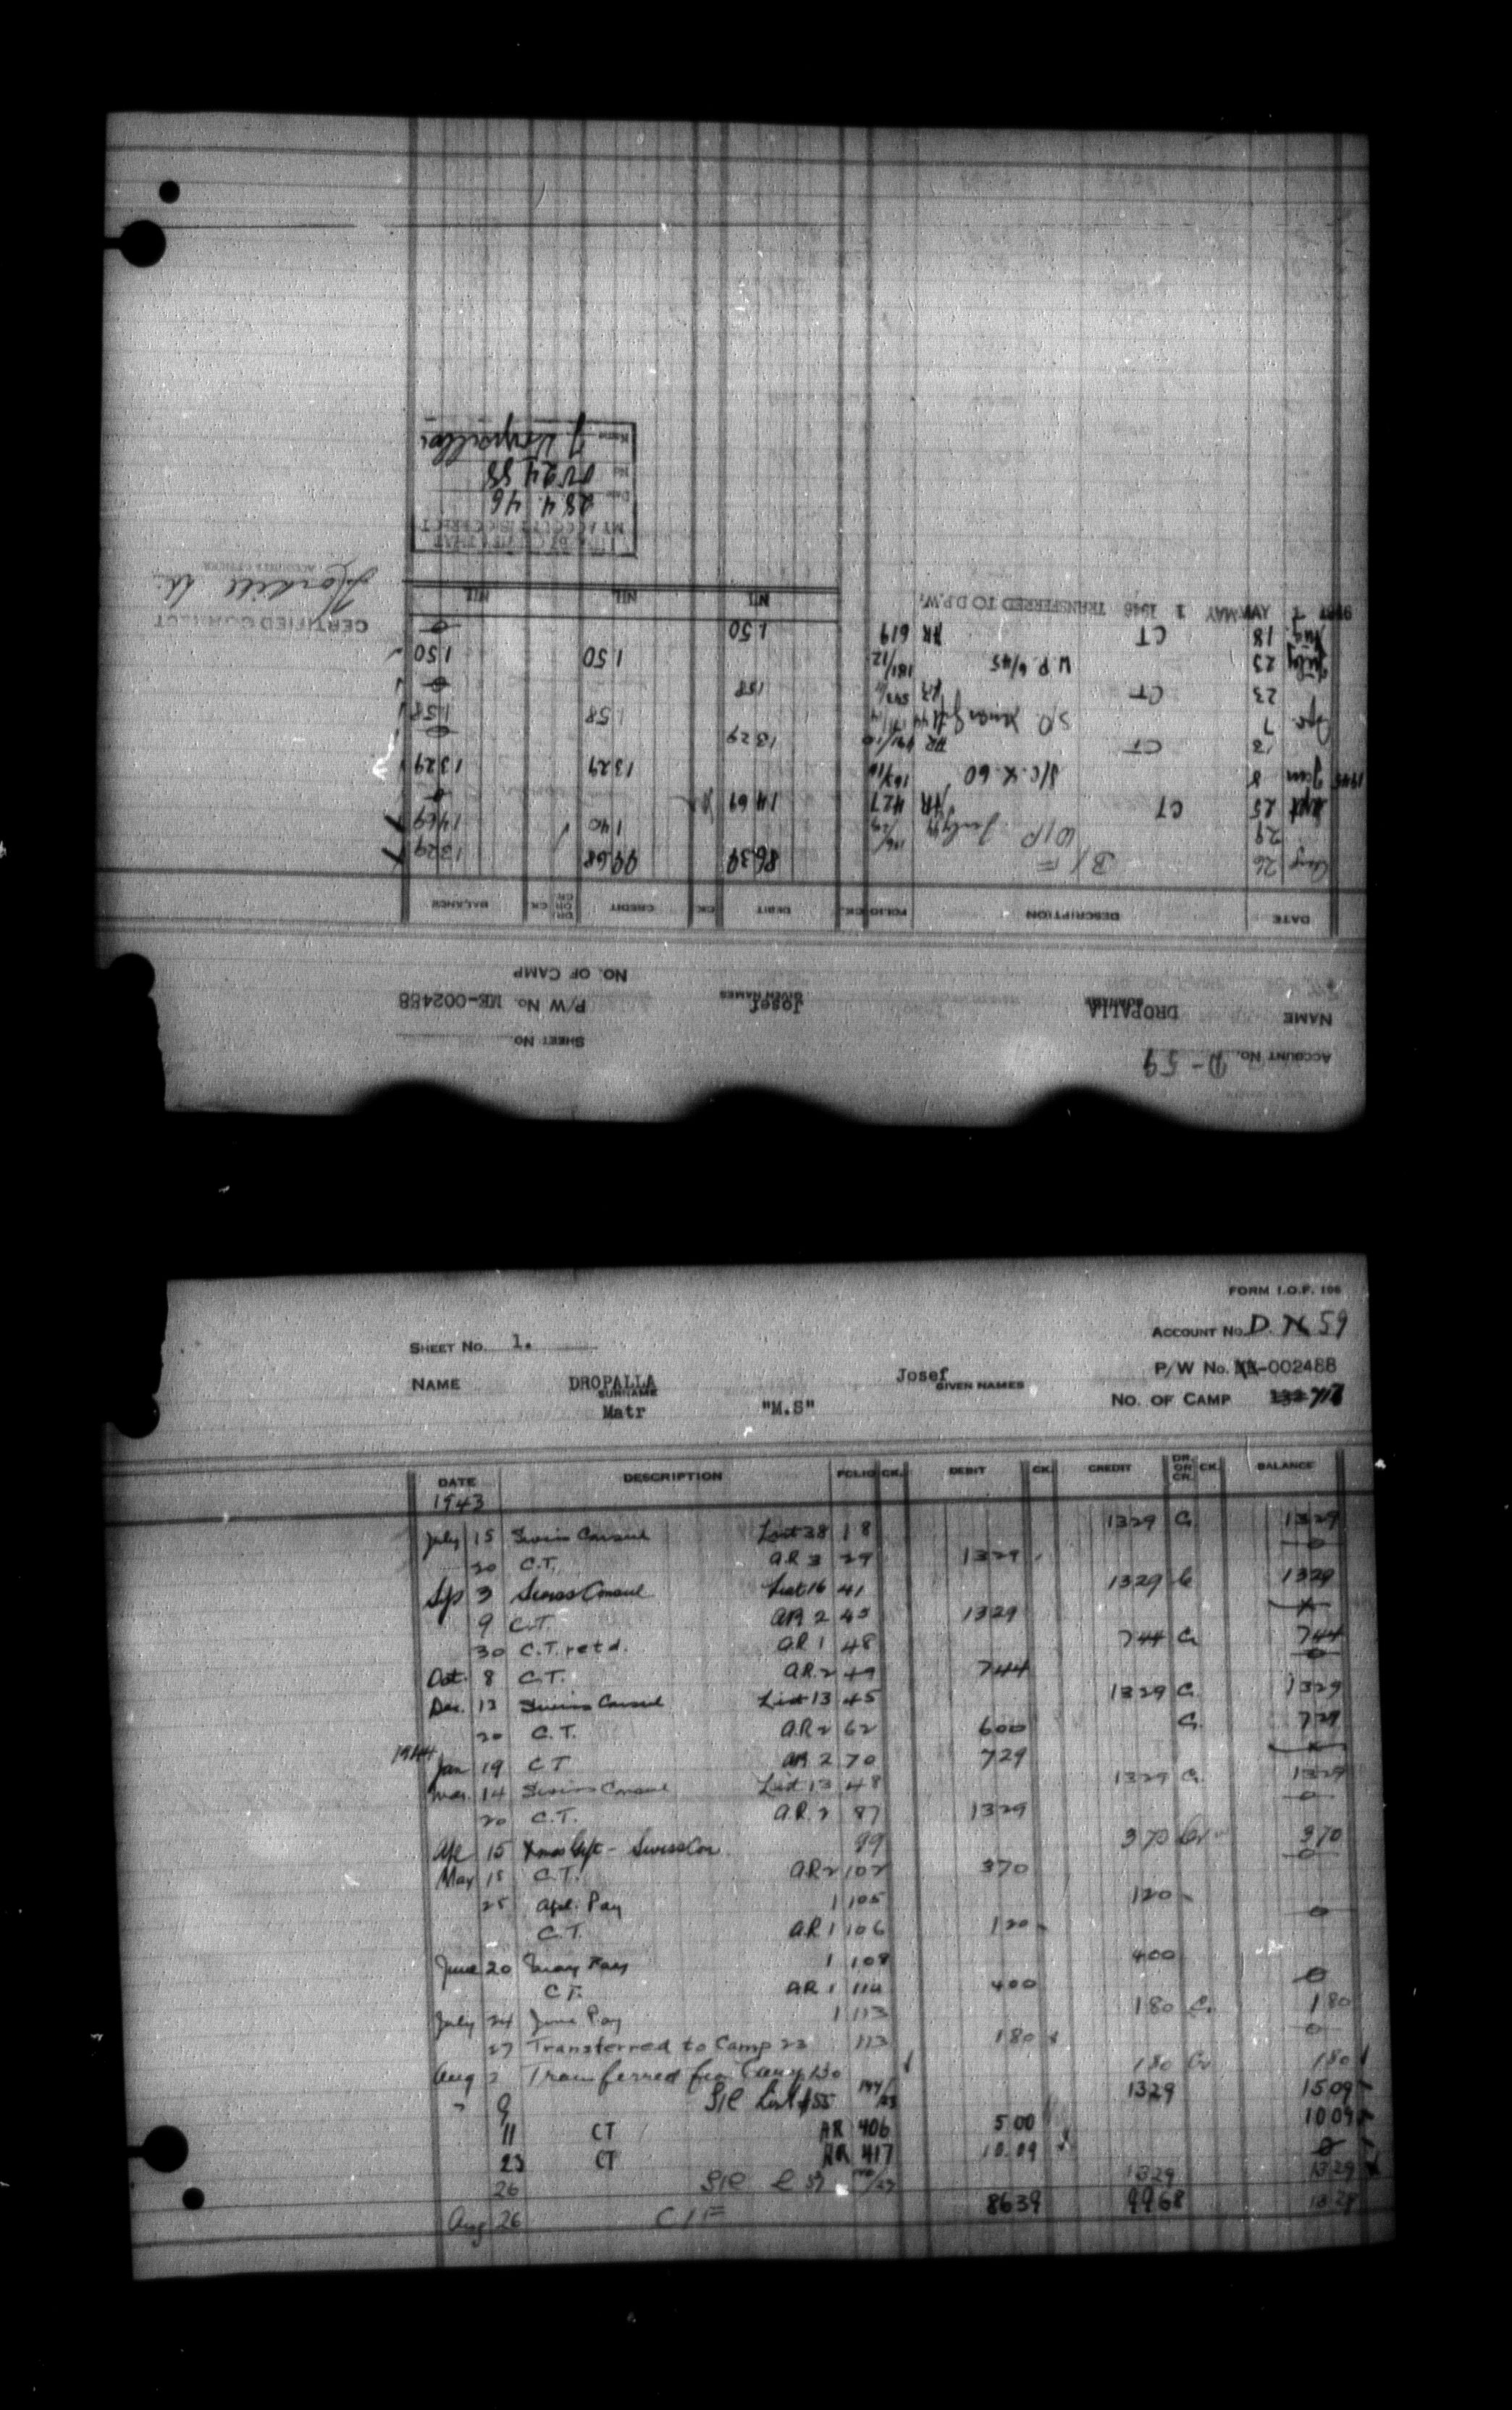 ACCOUNT No. D-59
SHEET No.
NAME DROPALLA Josef P/W No. ME-002488
SURNAME GIVEN NAMES
NO. OF CAMP
DATE DESCRIPTION FOLIO CK. DEBIT CK. CREDIT DR. OR CR. CK. BALANCE
Aug 26 B/F 8639 9968 1329
29 W/P July 44 140 1469
Sept 25 CT AR 427 1469 0
1945 Jan 8 S/C L 60 1329 1329
12 CT AR 1329 0
Apr 7 158 158
23 CT AR 158 0
July 23 W.P. 6/45 181/12 150 150
Aug. 18 CT AR 619 150 0
1946 MAY 1 1946 TRANSFERRED TO D.P.W. NIL NIL NIL
CERTIFIED CORRECT
ACCOUNTS OFFICER
MY ACCOUNT IS CORRECT
Date 28.4.46
No. 002488
Name J Dropalla
FORM I.O.F. 106
SHEET No. 1. ACCOUNT No. D. 59
P/W No. -002488
NAME DROPALLA Josef
SURNAME GIVEN NAMES
Matr "M.S" NO. OF CAMP 132
DATE DESCRIPTION FOLIO CK. DEBIT CK. CREDIT DR. OR CR. CK. BALANCE
1943
July 15 Swiss Consul List 38 18 1329 Cr 1329
20 C.T. AR 3 29 1329 0
Sep 3 Swiss Consul List 16 41 1329 Cr 1329
9 C.T. AR 2 45 1329
30 C.T. retd. AR 1 48 744 Cr 744
Oct. 8 C.T. AR 2 49 744 0
Dec. 13 Swiss Consul List 13 45 1329 Cr 1329
20 C.T. AR 2 62 600 Cr 729
1944 Jan 19 CT AR 2 70 729
Mar. 14 Swiss Consul List 13 48 1329 Cr 1329
20 C.T. AR 2 87 1329 0
Apl 15 Xmas Gift - Swiss Con. 99 370 Cr 370
May 15 C.T. AR 2 102 370 0
25 Apl. Pay 1 105 120
C.T. AR 1 106 120 0
June 20 May Pay 1 108 400
CT. AR 1 110 400 0
July 24 June Pay 1 113 180 Cr. 180
27 Transferred to Camp 23 113 180 0
Aug 2 Transferred from Camp 130 180 Cr 180
" 9 S/C List 55 1329 1509
11 CT AR 406 500 1009
23 CT AR 417 10.09 0
26 S/C L 57 1329 1329
Aug 26 C/F 8639 9968 1329